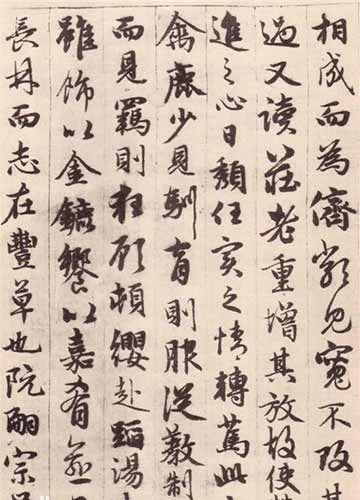 相成而為儕類見寬不攻其
過又讀莊老重增其放故使
進之心日頹任實之情轉篤此
禽鹿少見馴育則服從教制
而見羈則狂顧頓纓赴蹈湯
雖飾以金鑣饗以嘉肴
長林而志在豐草也阮嗣宗